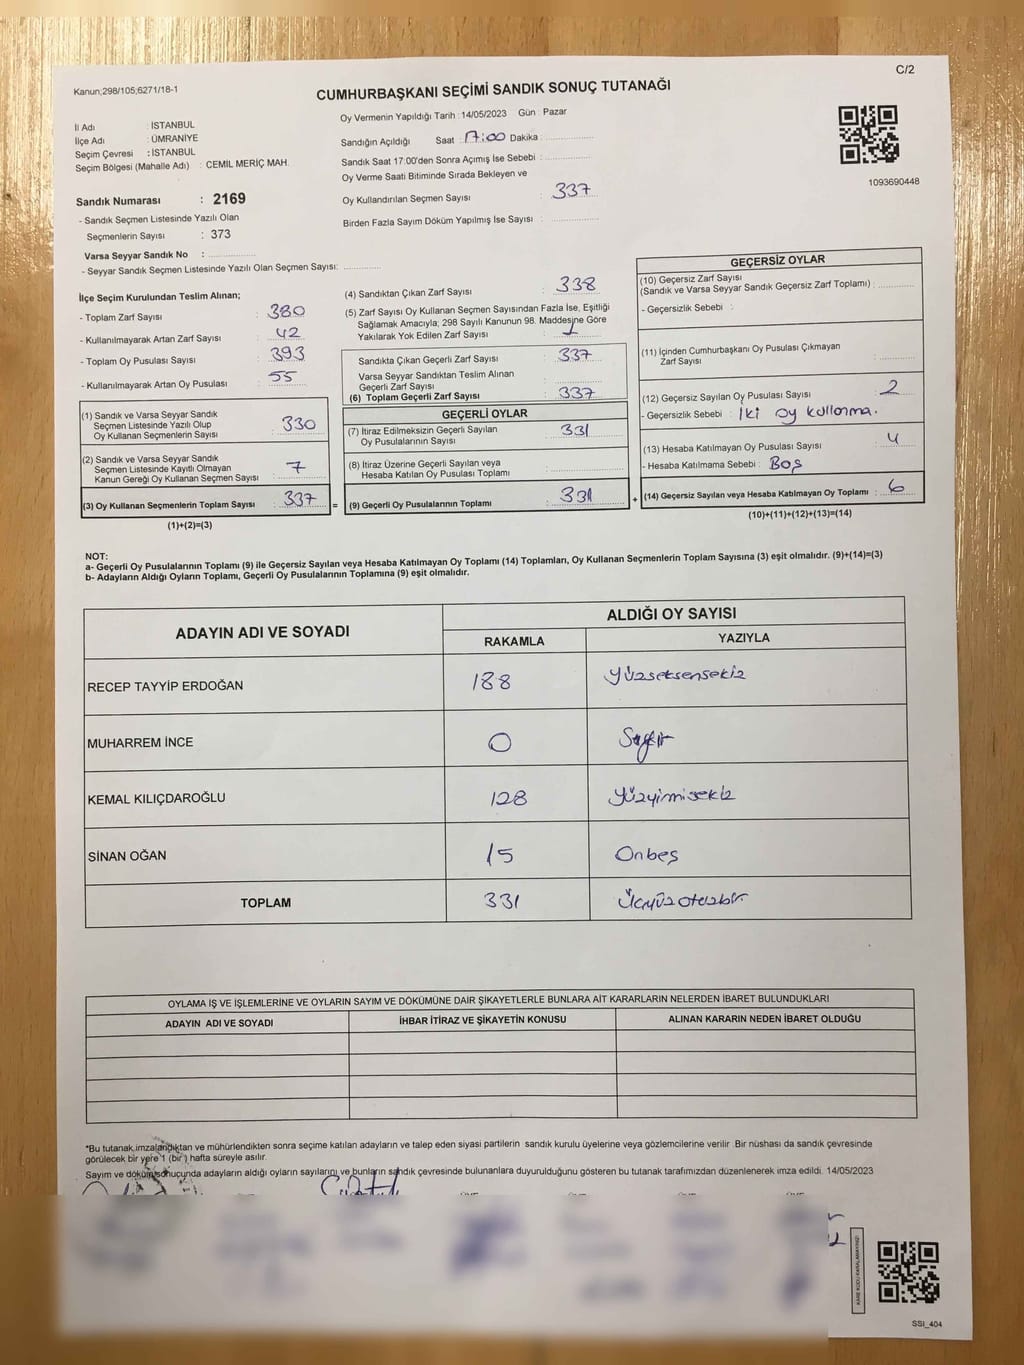 C/2
Kanun;298/105;6271/18-1
CUMHURBAŞKANI SEÇİMİ SANDIK SONUÇ TUTANAĞI
İl Adı : İSTANBUL
İlçe Adı : ÜMRANİYE
Seçim Çevresi : İSTANBUL
Seçim Bölgesi (Mahalle Adı) : CEMİL MERİÇ MAH.
Sandık Numarası : 2169
- Sandık Seçmen Listesinde Yazılı Olan
Seçmenlerin Sayısı : 373
Varsa Seyyar Sandık No :
- Seyyar Sandık Seçmen Listesinde Yazılı Olan Seçmen Sayısı:
Oy Vermenin Yapıldığı Tarih : 14/05/2023 Gün : Pazar
Sandığın Açıldığı Saat : 17:00 Dakika :
Sandık Saat 17:00'den Sonra Açımış İse Sebebi :
Oy Verme Saati Bitiminde Sırada Bekleyen ve
Oy Kullandırılan Seçmen Sayısı : 337
Birden Fazla Sayım Döküm Yapılmış İse Sayısı :
1093690448
İlçe Seçim Kurulundan Teslim Alınan;
- Toplam Zarf Sayısı : 380
- Kullanılmayarak Artan Zarf Sayısı : 42
- Toplam Oy Pusulası Sayısı : 393
- Kullanılmayarak Artan Oy Pusulası : 55
(1) Sandık ve Varsa Seyyar Sandık
Seçmen Listesinde Yazılı Olup
Oy Kullanan Seçmenlerin Sayısı : 330
(2) Sandık ve Varsa Seyyar Sandık
Seçmen Listesinde Kayıtlı Olmayan
Kanun Gereği Oy Kullanan Seçmen Sayısı : 7
(3) Oy Kullanan Seçmenlerin Toplam Sayısı : 337
(1)+(2)=(3)
=
(4) Sandıktan Çıkan Zarf Sayısı : 338
(5) Zarf Sayısı Oy Kullanan Seçmen Sayısından Fazla İse, Eşitliği
Sağlamak Amacıyla; 298 Sayılı Kanunun 98. Maddesine Göre
Yakılarak Yok Edilen Zarf Sayısı : 1
Sandıkta Çıkan Geçerli Zarf Sayısı : 337
Varsa Seyyar Sandıktan Teslim Alınan
Geçerli Zarf Sayısı :
(6) Toplam Geçerli Zarf Sayısı : 337
GEÇERLİ OYLAR
(7) İtiraz Edilmeksizin Geçerli Sayılan
Oy Pusulalarının Sayısı : 331
(8) İtiraz Üzerine Geçerli Sayılan veya
Hesaba Katılan Oy Pusulası Toplamı :
(9) Geçerli Oy Pusulalarının Toplamı : 331
+
GEÇERSİZ OYLAR
(10) Geçersiz Zarf Sayısı
(Sandık ve Varsa Seyyar Sandık Geçersiz Zarf Toplamı) :
- Geçersizlik Sebebi :
(11) İçinden Cumhurbaşkanı Oy Pusulası Çıkmayan
Zarf Sayısı :
(12) Geçersiz Sayılan Oy Pusulası Sayısı : 2
- Geçersizlik Sebebi : İki oy kullanma.
(13) Hesaba Katılmayan Oy Pusulası Sayısı : 4
- Hesaba Katılmama Sebebi : Boş
(14) Geçersiz Sayılan veya Hesaba Katılmayan Oy Toplamı : 6
(10)+(11)+(12)+(13)=(14)
NOT:
a- Geçerli Oy Pusulalarının Toplamı (9) ile Geçersiz Sayılan veya Hesaba Katılmayan Oy Toplamı (14) Toplamları, Oy Kullanan Seçmenlerin Toplam Sayısına (3) eşit olmalıdır. (9)+(14)=(3)
b- Adayların Aldığı Oyların Toplamı, Geçerli Oy Pusulalarının Toplamına (9) eşit olmalıdır.
ADAYIN ADI VE SOYADI ALDIĞI OY SAYISI
RAKAMLA YAZIYLA
RECEP TAYYİP ERDOĞAN 188 Yüzseksensekiz
MUHARREM İNCE 0 Sıfır
KEMAL KILIÇDAROĞLU 128 Yüzyirmisekiz
SİNAN OĞAN 15 Onbeş
TOPLAM 331 Üçyüzotuzbir
OYLAMA İŞ VE İŞLEMLERİNE VE OYLARIN SAYIM VE DÖKÜMÜNE DAİR ŞİKAYETLERLE BUNLARA AİT KARARLARIN NELERDEN İBARET BULUNDUKLARI
ADAYIN ADI VE SOYADI İHBAR İTİRAZ VE ŞİKAYETİN KONUSU ALINAN KARARIN NEDEN İBARET OLDUĞU
*Bu tutanak,imzalandıktan ve mühürlendikten sonra seçime katılan adayların ve talep eden siyasi partilerin sandık kurulu üyelerine veya gözlemcilerine verilir .Bir nüshası da sandık çevresinde
görülecek bir yere 1 (bir ) hafta süreyle asılır.
Sayım ve döküm sonucunda adayların aldığı oyların sayılarını ve bunların sandık çevresinde bulunanlara duyurulduğunu gösteren bu tutanak tarafımızdan düzenlenerek imza edildi. 14/05/2023
KARE KODU KARALAMAYINIZ!
SSI_404